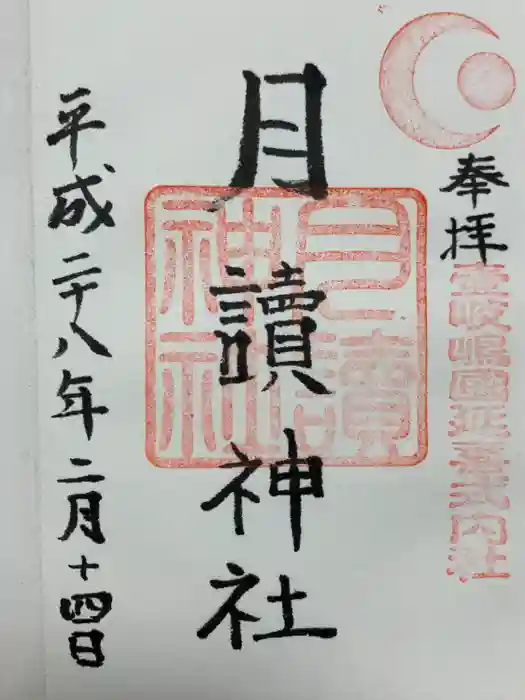 奉拝
壱岐嶋國延喜式内社
月讀神社
月讀
神社
平成二十八年二月十四日